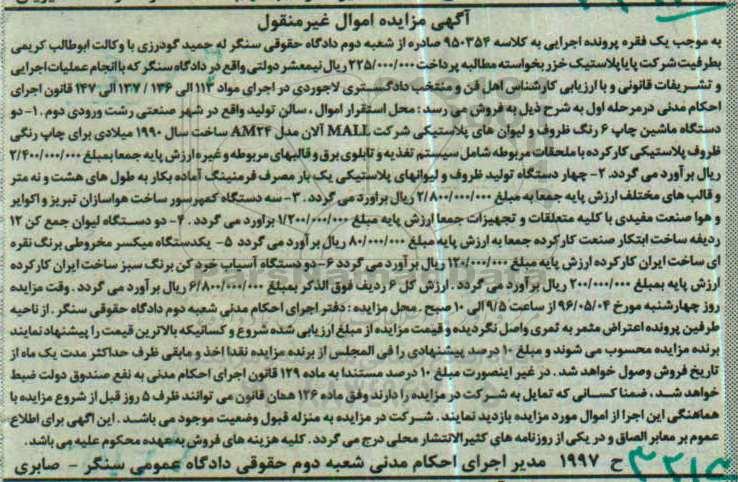 آگهی مزایده اموال غیرمنقول
به موجب یک فقره پرونده اجرایی به کلاسه ۹۵۰۳۵۴ صادره از شعبه دوم دادگاه حقوقی سنگر له حمید گودرزی با وکالت ابوطالب کریمی
بطرفیت شرکت پایا پلاستیک خزر بخواسته مطالبه پرداخت ۲۲۵/۰۰۰/۰۰۰ ریال نیمعشر دولتی واقع در دادگاه سنگر که با انجام عملیات اجرایی
و تشریفات قانونی و با ارزیابی کارشناس اهل فن و منتخب دادگستری لاجوردی در اجرای مواد ۱۱۳ الی ۱۳۶ / ۱۳۷ الی ۱۴۷ قانون اجرای
احکام مدنی در مرحله اول به شرح ذیل به فروش می رسد : محل استقرار اموال ، سالن تولید واقع در شهر صنعتی رشت ورودی دوم . ۱- دو
دستگاه ماشین چاپ ۶ رنگ ظروف و لیوان های پلاستیکی شرکت MALL آلان مدل AM۲۴ ساخت سال ۱۹۹۰ میلادی برای چاپ رنگی
ظروف پلاستیکی کارکرده با ملحقات مربوطه شامل سیستم تغذیه و تابلوی برق و قالبهای مربوطه و غیره ارزش پایه جمعا بمبلغ ۲/۴۰۰/۰۰۰/۰۰۰
ریال برآورد می گردد. ۲- چهار دستگاه تولید ظروف و لیوانهای پلاستیکی یک بار مصرف فرمنینگ آماده بکار به طول های هشت و نه متر
و قالب های مختلف ارزش پایه جمعا به مبلغ ۲/۸۰۰/۰۰۰/۰۰۰ ریال براورد می گردد . ۳- سه دستگاه کمپرسور ساخت هواسازان تبریز و اکوایر
و هوا صنعت مفیدی با کلیه متعلقات و تجهیزات جمعا ارزش پایه مبلغ ۱/۲۰۰/۰۰۰/۰۰۰ براورد می گردد . ۴- دو دستگاه لیوان جمع کن ۱۲
ردیفه ساخت ابتکار صنعت کارکرده جمعا به ارزش پایه مبلغ ۸۰/۰۰۰/۰۰۰ ریال برآورد می گردد ۵- یکدستگاه میکسر مخروطی برنگ نقره
ای ساخت ایران کارکرده ارزش پایه مبلغ ۱۲۰/۰۰۰/۰۰۰ ریال برآورد می گردد ۶- دو دستگاه آسیاب خرد کن برنگ سبز ساخت ایران کارکرده
ارزش پایه بمبلغ ۲۰۰/۰۰۰/۰۰۰ ریال برآورد می گردد . ارزش کل ۶ ردیف فوق الذکر بمبلغ ۶/۸۰۰/۰۰۰/۰۰۰ ریال برآورد می گردد . وقت مزایده
روز چهارشنبه مورخ ۹۶/۰۵/۰۴ از ساعت ۹/۵ الی ۱۰ صبح .محل مزایده : دفتر اجرای احکام مدنی شعبه دوم دادگاه حقوقی سنگر . از ناحیه
طرفین پرونده اعتراض مثمر به ثمری واصل نگردیده و قیمت مزایده از مبلغ ارزیابی شده شروع و کسانیکه بالاترین قیمت را پیشنهاد نمایند
برنده مزایده محسوب می شوند و مبلغ ۱۰ درصد پیشنهادی را فی المجلس از برنده مزایده نقدا اخذ و مابقی ظرف حداکثر مدت یک ماه از
تاریخ فروش وصول خواهد شد . در غیر اینصورت مبلغ ۱۰ درصد مستندا به ماده ۱۲۹ قانون اجرای احکام مدنی به نفع صندوق دولت ضبط
خواهد شد ، ضمنا کسانی که تمایل به شرکت در مزایده را دارند وفق ماده ۱۲۶ همان قانون می توانند ظرف ۵ روز قبل از شروع مزایده با
هماهنگی این اجرا از اموال مورد مزایده بازدید نمایند . شرکت در مزایده به منزله قبول وضعیت موجود می باشد . این آگهی برای اطلاع
عموم بر معابر الصاق و در یکی از روزنامه های کثیرالانتشار محلی درج می گردد . کلیه هزینه های فروش به عهده محکوم علیه می باشد.
ح ۱۹۹۷ مدیر اجرای احکام مدنی شعبه دوم حقوقی دادگاه عمومی سنگر - صابری